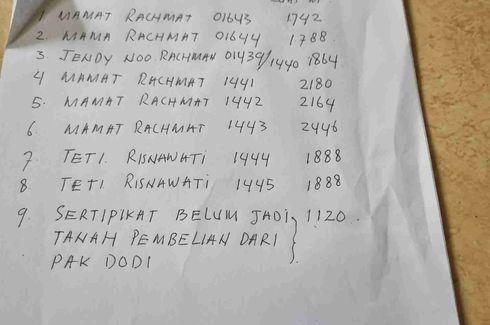 1 MAMAT RACHMAT 01643 1742
2. MAMA RACHMAT 01644 1788.
3. JENDY NOO. RACHMAN 01439/1440 1864
4 MAMAT RACHMAT 1441 2180
5. MAMAT RACHMAT 1442 2164
6. MAMAT RACHMAT 1443 2446
7 TETI. RISNAWATI 1444 1888
8 TETI. RISNAWATI 1445 1888
9. SERTIPIKAT BELUM JADI 1120.
TANAH PEMBELIAN DARI
PAK DODI